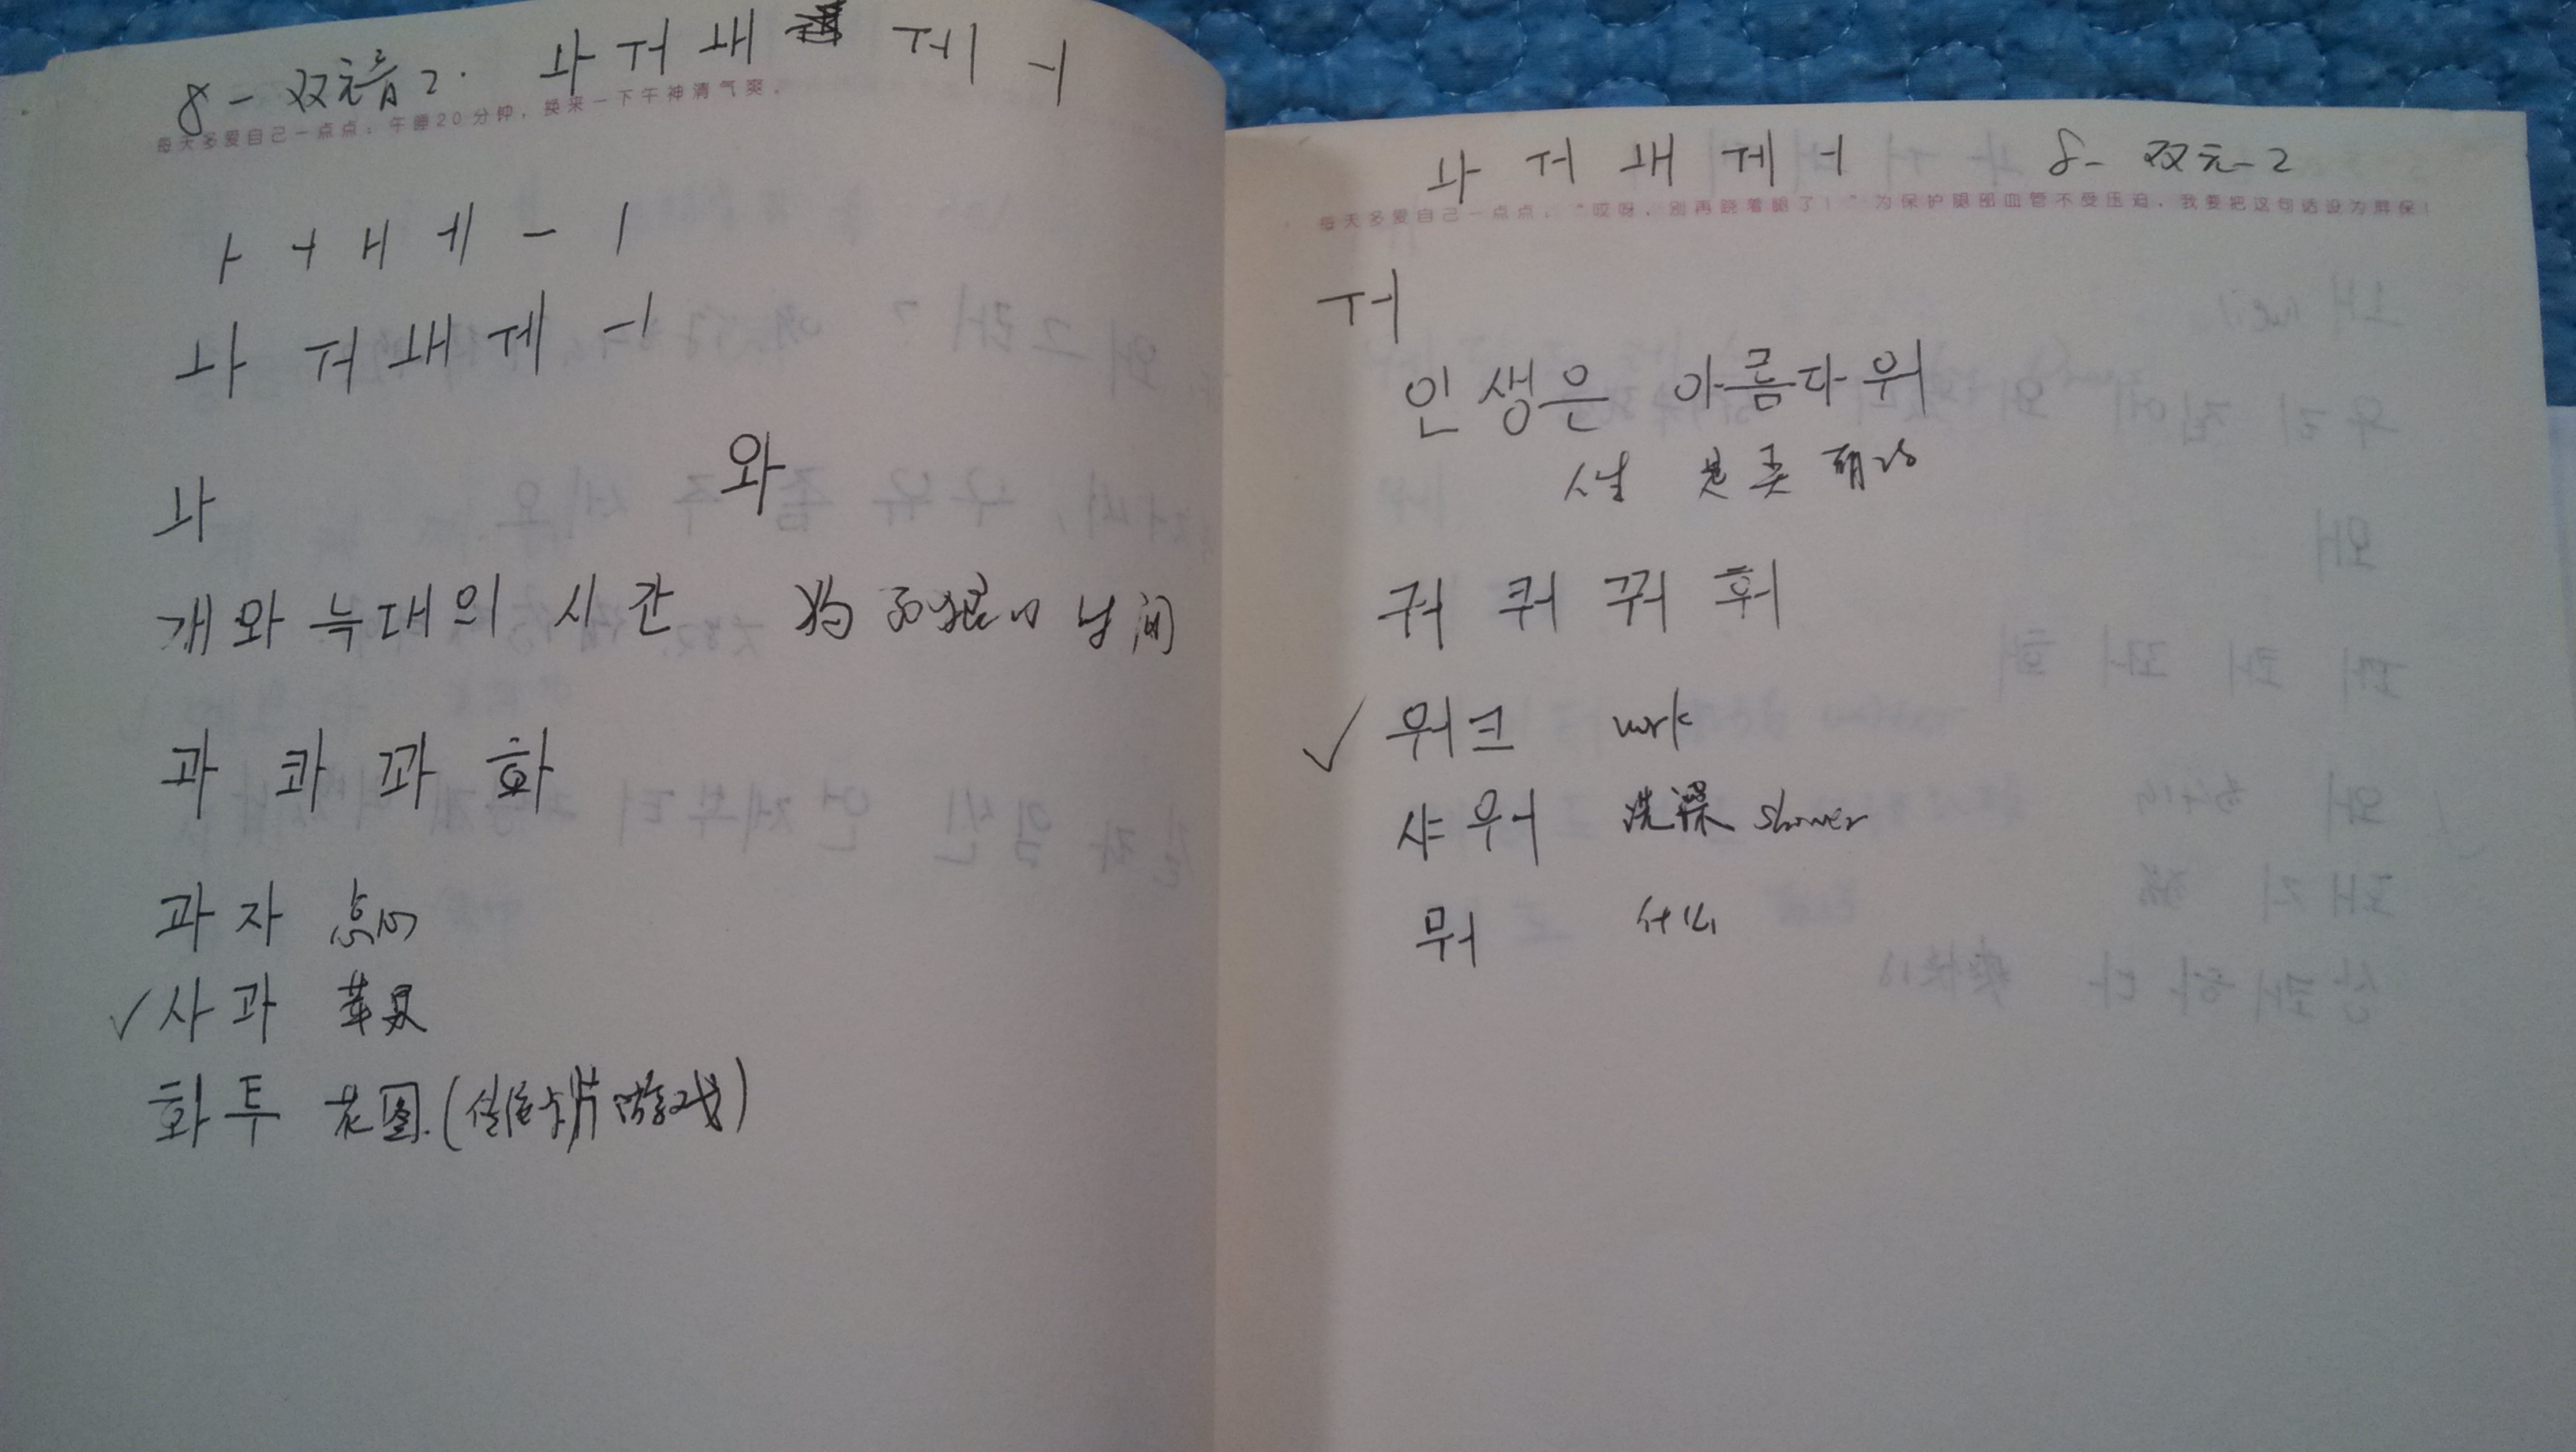 8-双元音2. ㅘ ㅝ ㅙ ㅞ ㅢ
每天多爱自己一点点：午睡20分钟，换来一下午神清气爽。
ㅏ ㅓ ㅐ ㅔ ㅡ ㅣ
ㅘ ㅝ ㅙ ㅞ ㅢ
ㅘ 와
개와 늑대의 시간 狗和狼的时间
과 콰 꽈 화
과자 点心
✓사과 苹果
화투 花图.(传统卡片游戏)
ㅘ ㅝ ㅙ ㅞ ㅢ 8-双元-2
每天多爱自己一点点：“哎呀，别再跷着腿了！”为保护腿部血管不受压迫，我要把这句话设为屏保！
ㅝ
인생은 아름다워
人生 是美丽的
궈 쿼 꿔 훠
✓ 워크 work
샤워 洗澡 shower
뭐 什么